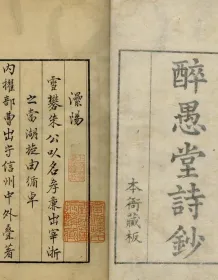 醉愚堂詩鈔
本衙藏板
溧陽
雪礬朱公以名孝廉出宰浙
之當湖旋由循卓
內擢部曹出守信州中外疊著